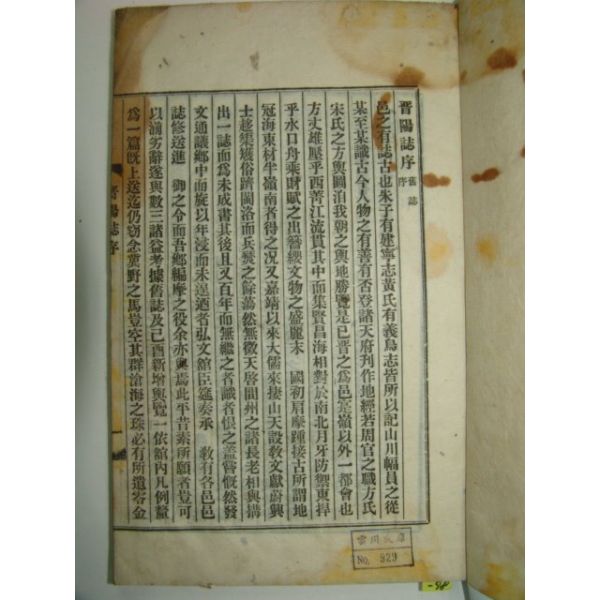 晋陽誌序 舊誌序
邑之有誌古也朱子有建寧志黃氏有義烏志皆所以記山川幅員之從
某至某識古今人物之有善有否登諸天府刊作地經若周官之職方氏
宋氏之方輿圖洎我朝之輿地勝覽是已晋之爲邑寔嶺以外一都會也
方丈雄壓乎西菁江流貫其中而集賢昌海相對於南北月牙防禦東捍
乎水口舟乘財賦之出簪纓文物之盛麗末 國初肩摩踵接古所謂地
冠海東材半嶺南者得之况又嘉靖以來大儒來捿山天設敎文獻蔚興
士趍集嫿俗躋閩洛而兵燹之餘蕩然無徵天啓間州之諸長老相與搆
出一誌而爲未成書其後且又百年而無繼之者識者恨之盖嘗慨然發
文通議鄉中而旋以年浸而未遑迺者弘文館臣筵奏承 敎有各邑邑
誌修送進 御之令而吾鄉編摩之役余亦與焉此平昔素所願者豈可
以謭劣辭遂與數三諸益考據舊誌及己酉新增輿覽一依館內凡例釐
爲一篇旣上送迄仍窃念冀野之馬豈空其群滄海之珠必有所遺寄金
晋陽誌序
No. 929